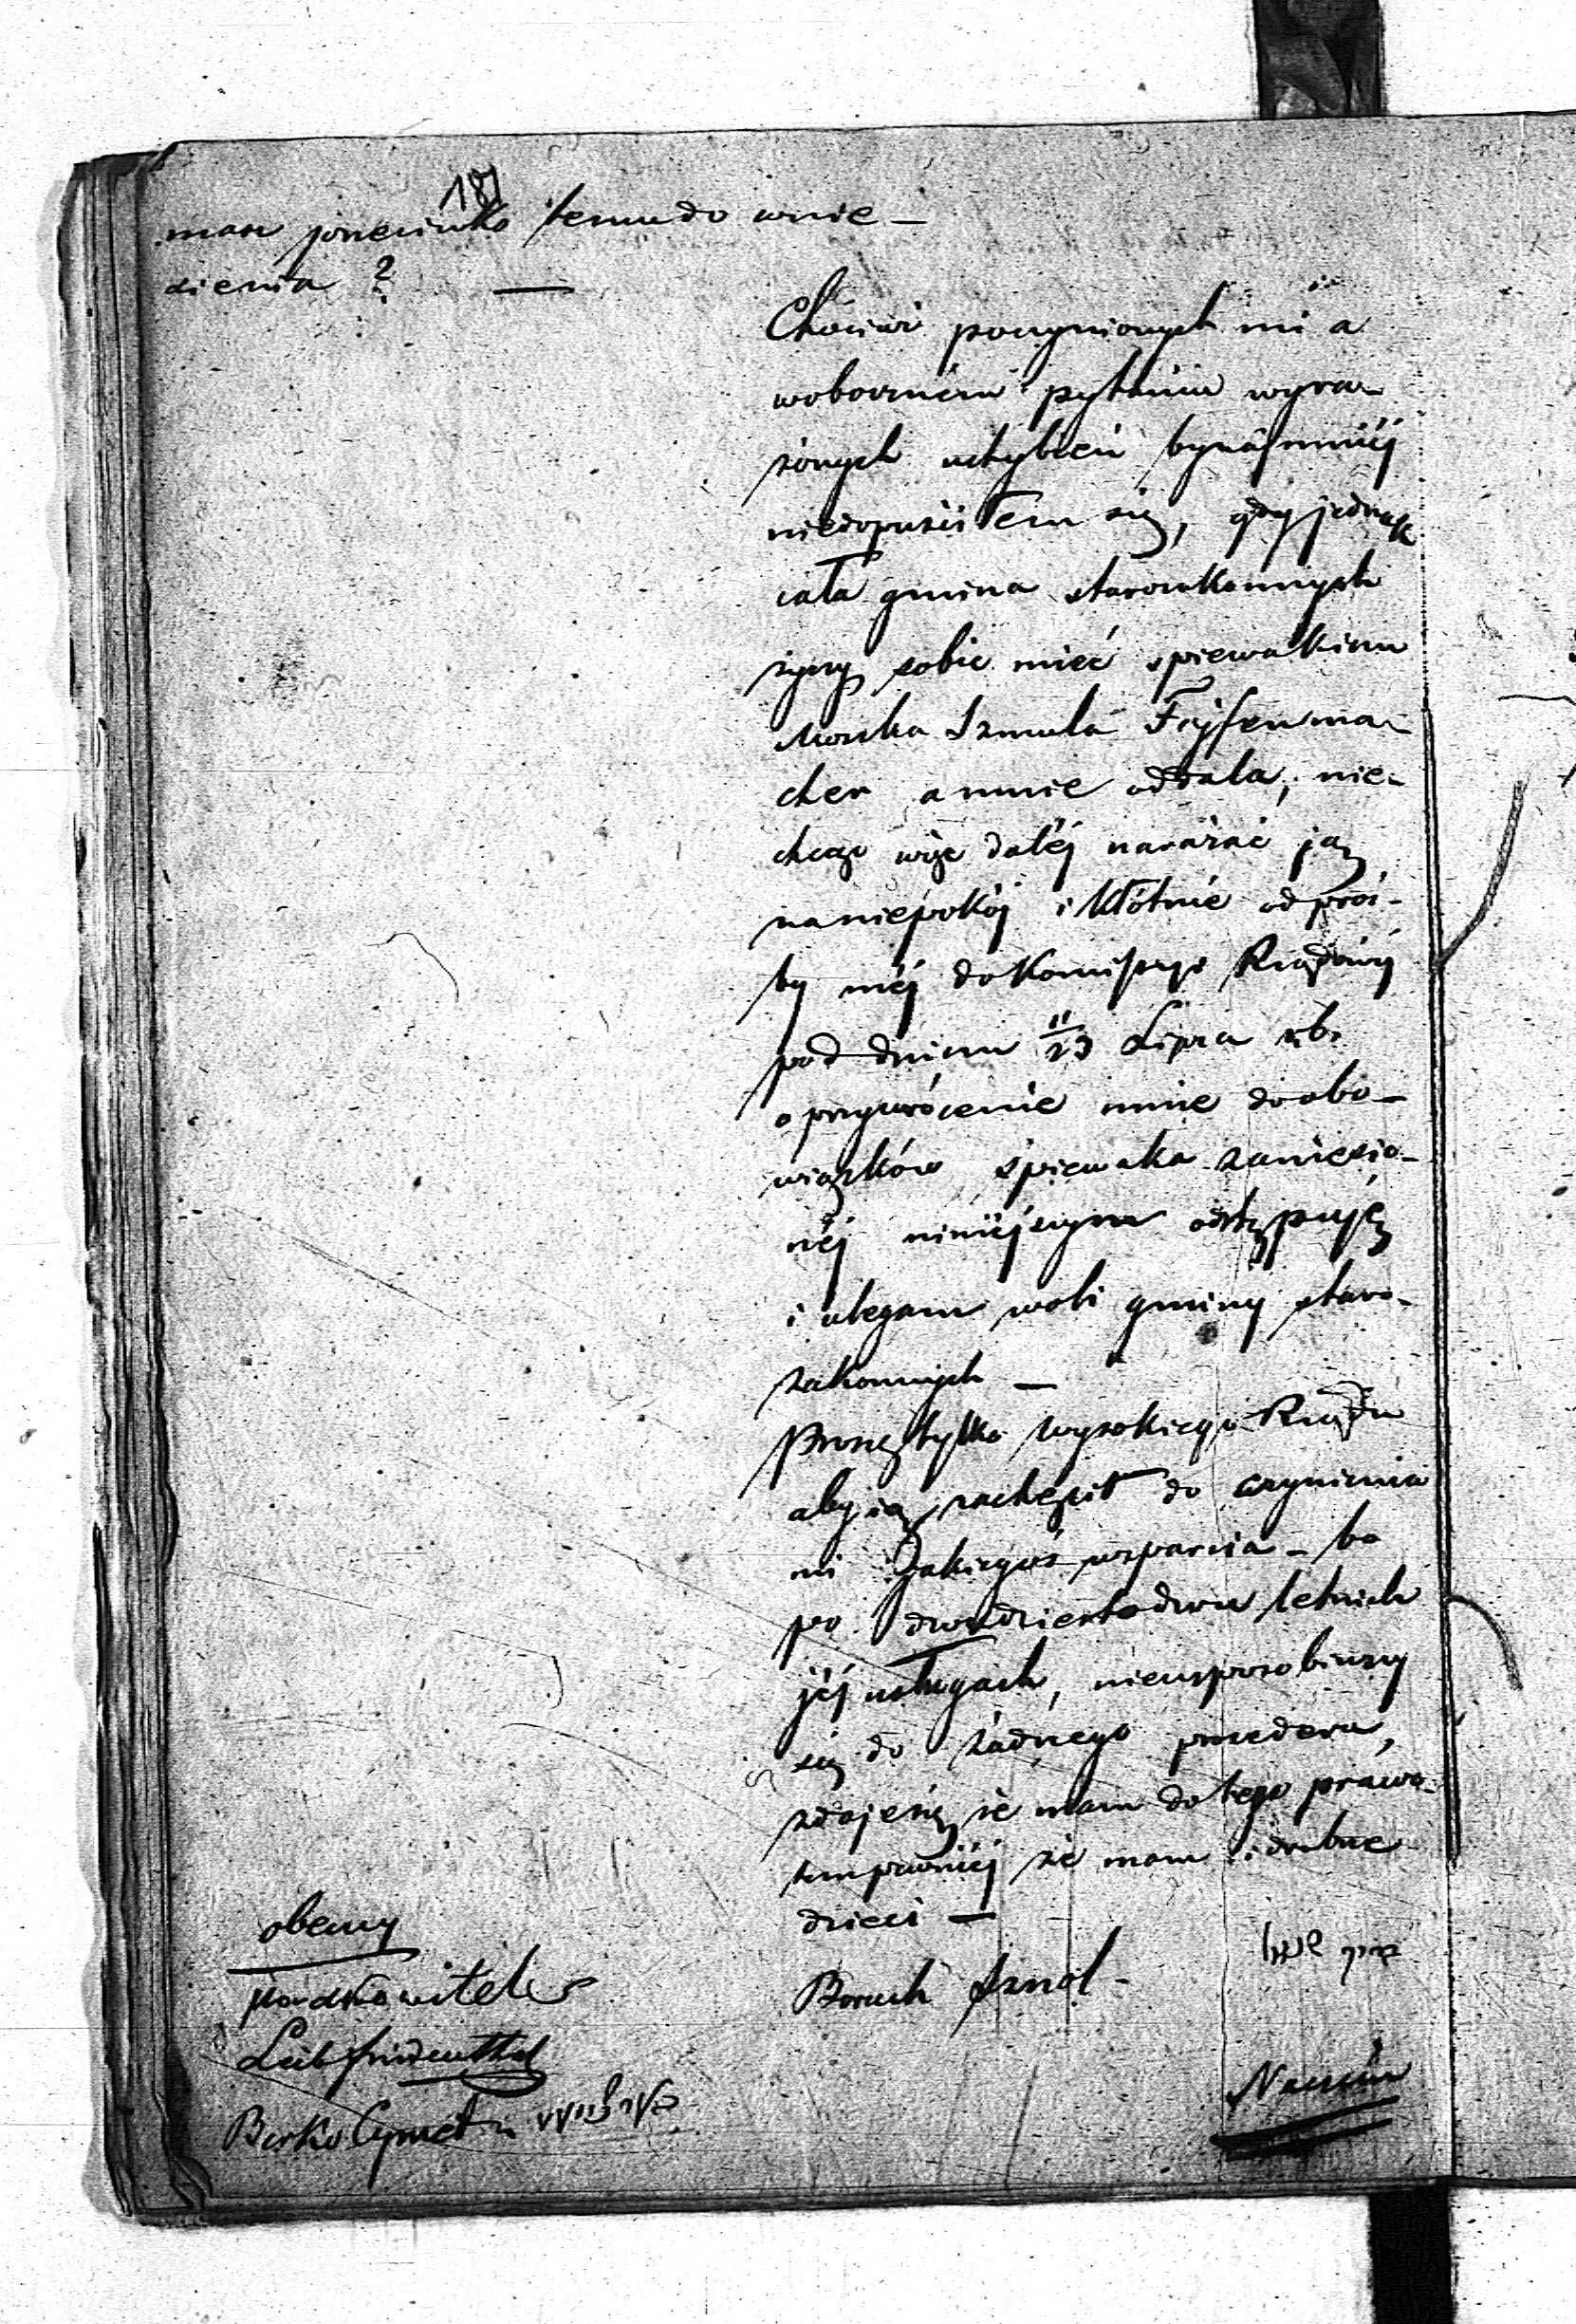 187
masz przeciwko temu do wnie-
sienia ? —
Chociaż poczynionych mi a
w obocznem pytaniu wyra-
żonych uchybień bynajmniéj
niedopuściłem się, gdy jednak
cała gmina starozakonnych
życzy sobie mieć spiewakiem
Moszka Szmula Fejfenma-
cher a mnie oddala, nie-
chcąc więc daléj narażać ją
na niepokój i kłótnie od proś-
by méj do Komissyi Rządowéj
pod dniem 11/23 Lipca r.b.
o przywrócenie mnie do obo-
wiązków śpiewaka zaniesio-
néj niniejszym odstępuję
i ulegam woli gminy staro-
zakonnych —
Proszę tylko Wysokiego Rządu
aby ją zachęcił do czynienia
mi jakiegoś wsparcia - bo
po dwudziestodwu letnich
jéj usługach, nieusposobiwszy
się do żadnego procederu,
zdaje się że mam do tego prawo
tempewniéj że mam i drobne
dzieci —
Boruch Sznol
obecny
Leib Fridenthal
Berko Cymet